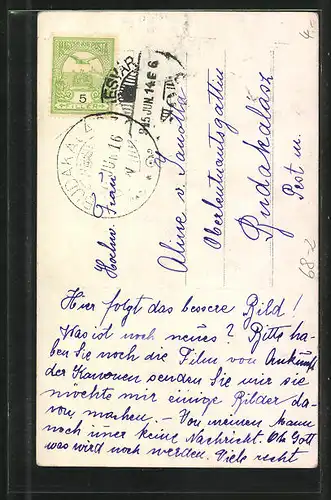 5
FILLÉR
BUDAKALÁSZ
915 JUN. 14
JUN 16
4.-
68-2
Hochw. Frau
Oberleutnantsgattin
Budakalász
Pest m.
Hier folgt das bessere Bild!
Was ist noch neues? Bitte ha-
ben Sie noch die Film von Ankunft
der Kanonen senden Sie mir sie
möchte mir einige Bilder da-
von machen. - Von meinem Mann
noch imer keine Nachricht. Oh Gott
was wird noch werden. Viele